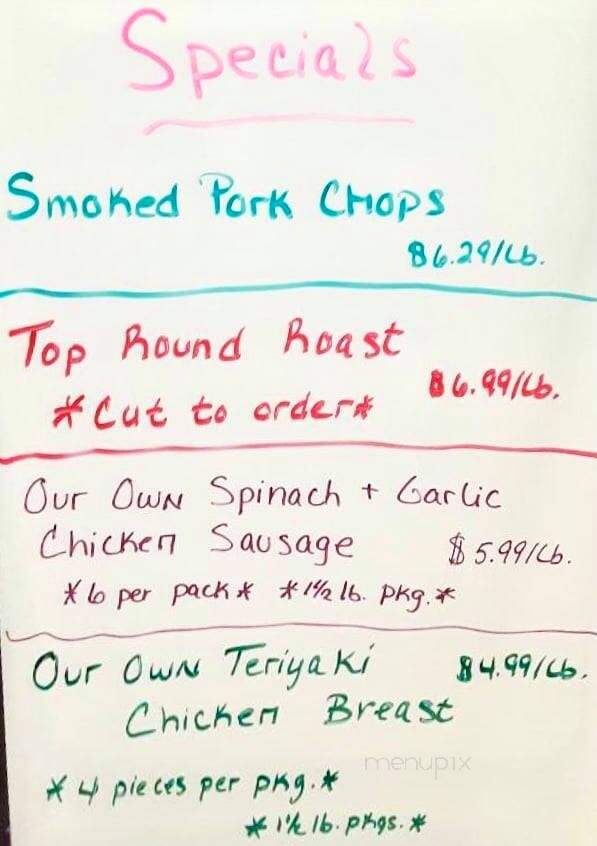 Specials
Smoked Pork Chops
$6.29/Lb.
Top Round Roast
$6.99/Lb.
*Cut to order*
Our Own Spinach + Garlic
Chicken Sausage
$5.99/Lb.
*6 per pack* *1½ lb. pkg.*
Our Own Teriyaki
$4.99/Lb.
Chicken Breast
menupix
*4 pieces per pkg.*
*1½ lb. pkgs.*